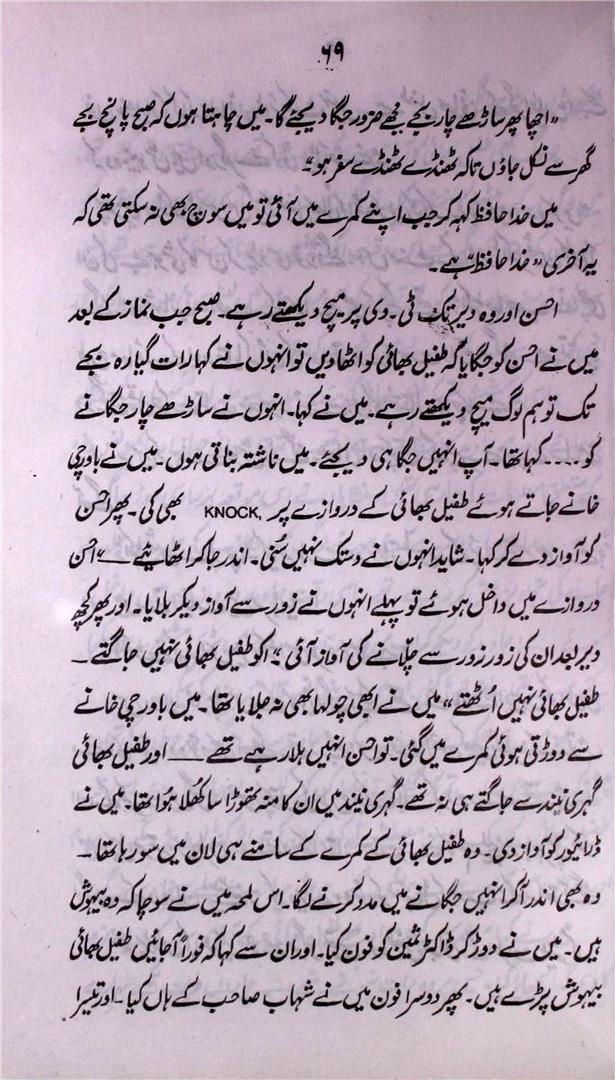 ۶۹
"اچھا پھر ساڑھے چار بجے مجھے ضرور جگا دیجئے گا۔ میں چاہتا ہوں کہ صبح پانچ بجے
گھر سے نکل جاؤں تاکہ ٹھنڈے ٹھنڈے سفر ہو"۔
میں خدا حافظ کہہ کر جب اپنے کمرے میں آئی تو میں سوچ بھی نہ سکتی تھی کہ
یہ آخری "خدا حافظ" ہے۔
احسن اور وہ دیر تک ٹی۔ دی پر میچ دیکھتے رہے۔ صبح جب نماز کے بعد
میں نے احسن کو جگایا کہ طفیل بھائی کو اٹھا دیں تو انہوں نے کہا رات گیارہ بجے
تک تو ہم لوگ میچ دیکھتے رہے۔ میں نے کہا۔ انہوں نے ساڑھے چار جگانے
کو .... کہا تھا۔ آپ انہیں جگا ہی دیجئے۔ میں ناشتہ بناتی ہوں۔ میں نے باورچی
خانے جاتے ہوئے طفیل بھائی کے دروازے پر KNOCK, بھی کی۔ پھر احسن
کو آواز دے کر کہا۔ شاید انہوں نے دستک نہیں سُنی۔ اندر جا کر اٹھائیے —" احسن
دروازے میں داخل ہوئے تو پہلے انہوں نے زور سے آواز دیکر بلایا۔ اور پھر کچھ
دیر بعد ان کی زور زور سے چلّانے کی آواز آئی "اکو طفیل بھائی نہیں جاگتے —
طفیل بھائی نہیں اُٹھتے" میں نے ابھی چولہا بھی نہ جلایا تھا۔ میں باورچی خانے
سے دوڑتی ہوئی کمرے میں گئی۔ تو احسن انہیں ہلا رہے تھے —— اور طفیل بھائی
گہری نیند سے جاگتے ہی نہ تھے۔ گہری نیند میں ان کا منہ تھوڑا سا کھُلا ہُوا تھا۔ میں نے
ڈرائیور کو آواز دی۔ وہ طفیل بھائی کے کمرے کے سامنے ہی لان میں سو رہا تھا —
وہ بھی اندر آ کر انہیں جگانے میں مدد کرنے لگا۔ اس لمحہ میں نے سوچا کہ وہ بیہوش
ہیں۔ میں نے دوڑ کر ڈاکٹر ثمین کو فون کیا۔ اور ان سے کہا کہ فوراً آجائیں طفیل بھائی
بیہوش پڑے ہیں۔ پھر دوسرا فون میں نے شہاب صاحب کے ہاں کیا۔ اور تیسرا